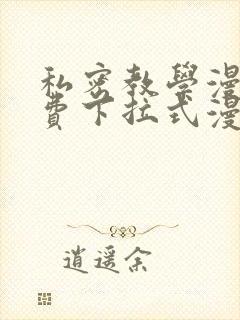 私密教學漫
費下拉式漫
逍遥余